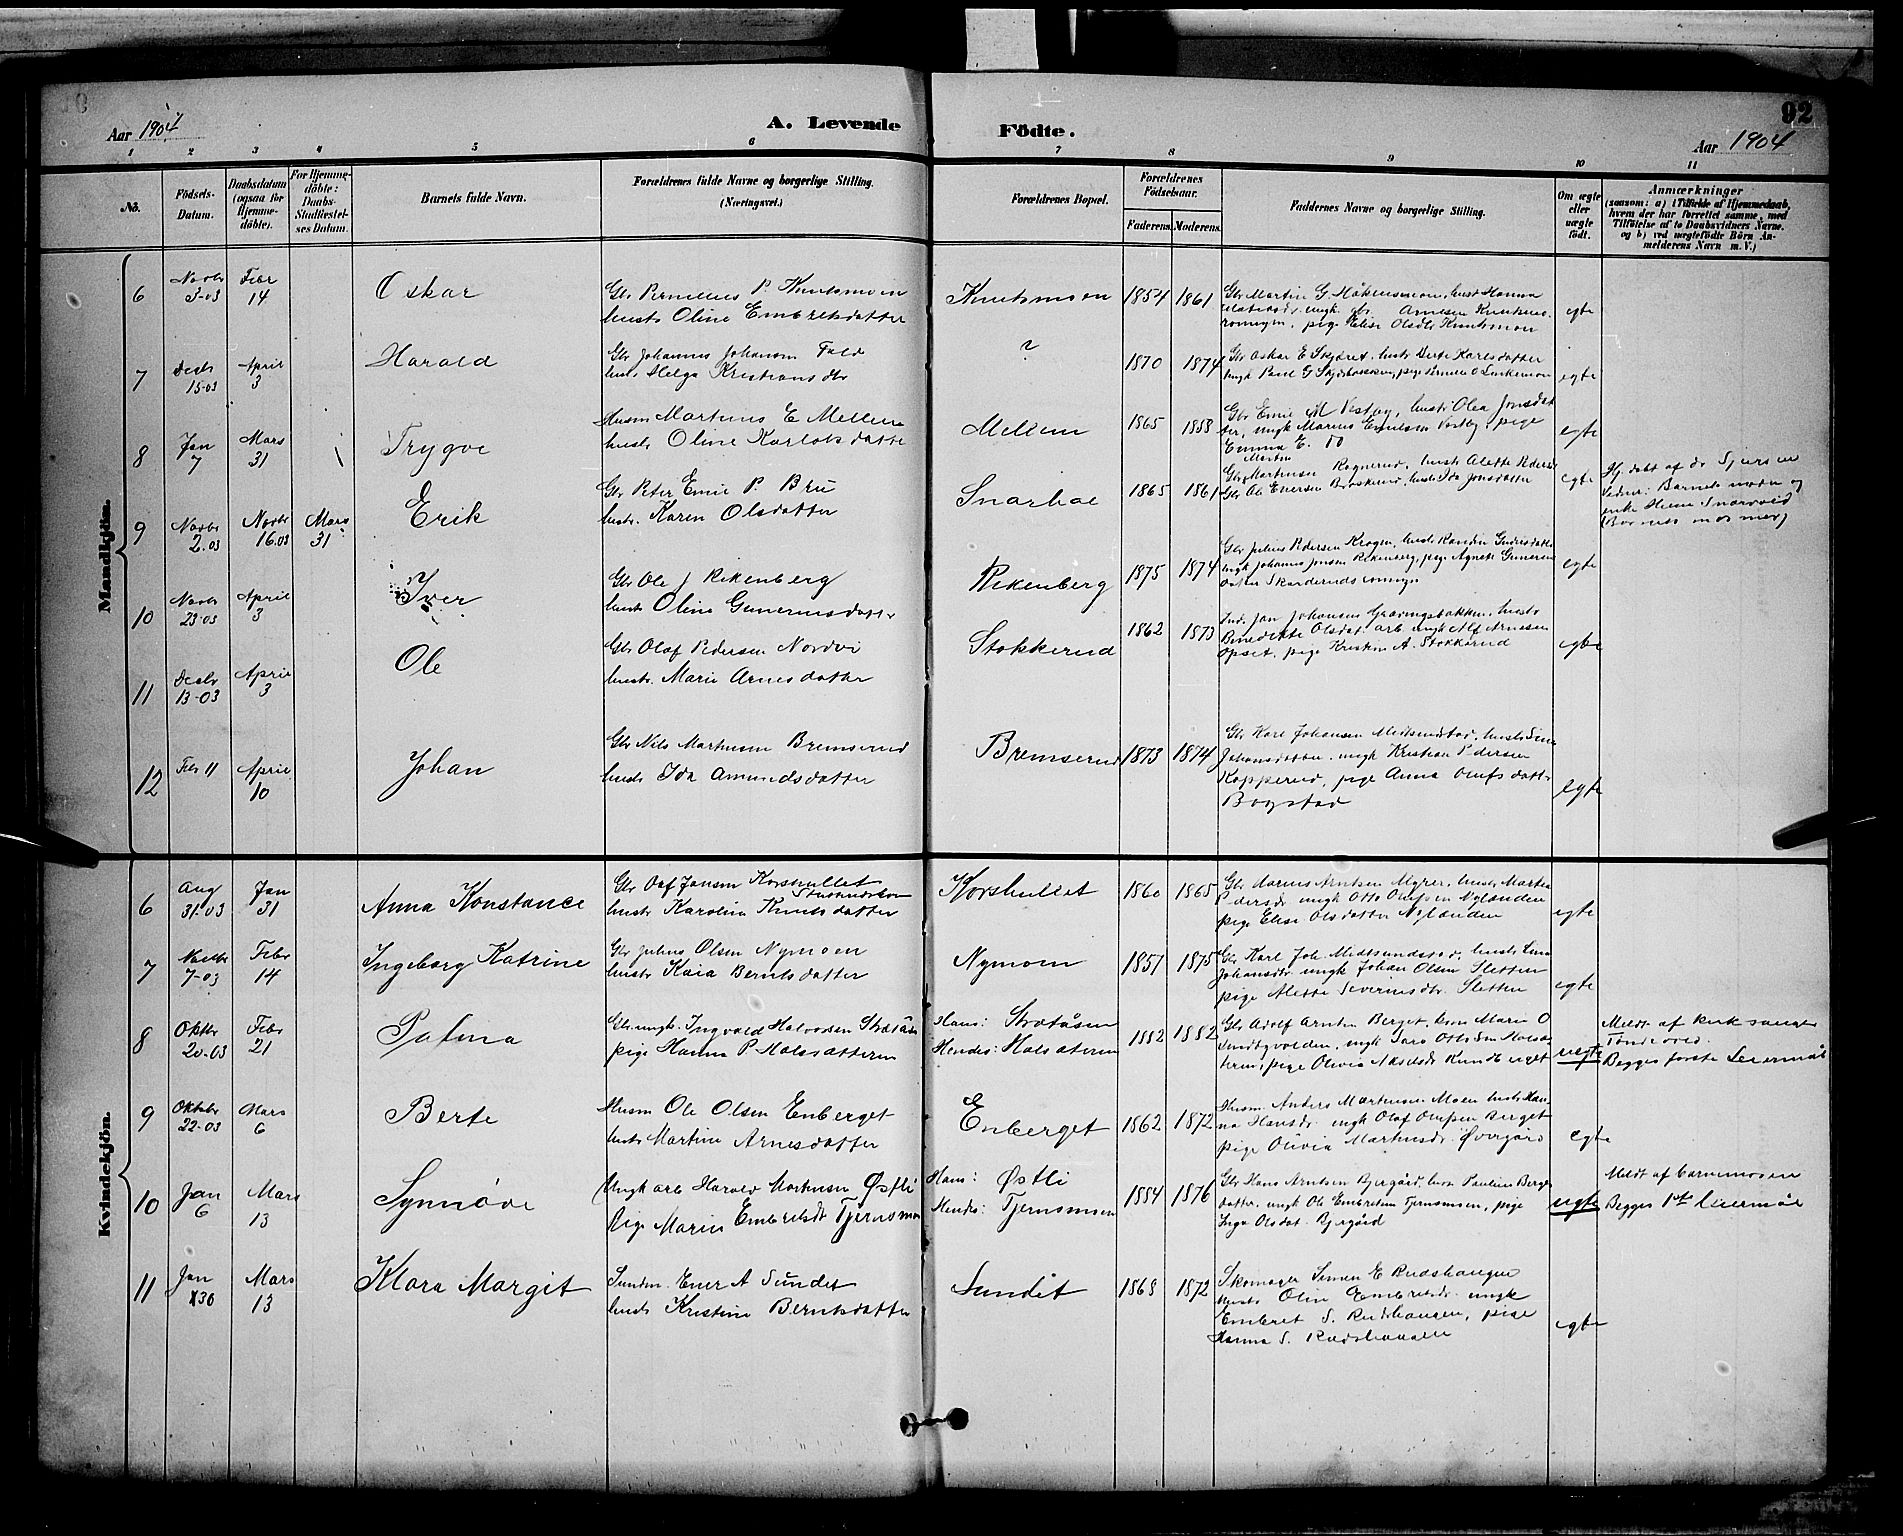 92
Aar 1904
A. Levende
Födte.
Aar 1904
1 2 3 4 5 6 7 8 9 10 11
No.
Födsels-Datum.
Daabsdatum (ogsaa för Hjemmedöbte).
For Hjemmedöbte: Daabs-Stadfæstelses Datum.
Barnets fulde Navn.
Forældrenes fulde Navne og borgerlige Stilling. (Næringsvei.)
Forældrenes Bopæl.
Forældrenes Födselsaar.
Faderens. Moderens.
Faddernes Navne og borgerlige Stilling.
Om ægte eller uægte födt.
Anmærkninger
(saasom: a) i Tilfælde af Hjemmedaab,
hvem der har forrettet samme, med
Tilföielse af to Daabsvidners Navne.
og b) ved uægtefödte Börn An-
melderens Navn m. V.)
Mandkjön.
6 Novbr 3-03 Febr 14 Oskar
Gbr P. Knutsmoen
hustr Oline Embretsdatter
Knutsmoen 1854 1861
Gbr Martin G. Håkensmoen, hustr Hanna
pige Elise Olsdtr Knutsmoen
egte
7 Decbr 15-03 April 3 Harald
Gbr Johannes Johansen Fald
hustr Helga Kristiansdtr
? 1870 1874
Gbr Oskar E Skjæret, hustr Berte Karlsdatter
ungk Paul G
egte
8 Jan 7 Mars 31 Trygve
Husm Martinus E Mellem
hustr Oline Karlotsdatter
Mellem 1865 1858
Gbr Emil M Vestby, hustr Olea Jonsdat
ter, ungk Marius Emilsen Vestby, pige
Emma E. do
egte
9 Novbr 2.03 Novbr 16.03 Mars 31 Erik
Gbr Peter Emil P Bru
hustr. Karen Olsdatter
Snarhol 1865 1861
Gbr Martinsen Rognerud, hustr Alette Peders
Gbr Ole Enersen hustr Ida Jonsdatter
egte
Hj. døbt af dr Sjursen
Vidner: Barnets moder og
enke
(Barnets mormor)
10 Novbr 23-03 April 3 Iver
Gbr Ole J Rekenberg
hustr Oline Gunerusdatter
Rekenberg 1875 1874
Gbr Julius Pedersen Krogen, hustr Randine
ungk Johannes Jensen Rekenberg, pige Agnete Gunerus
datter
egte
11 Decbr 13-03 April 3 Ole
Gbr Olaf Pedersen Nordvi
hustr. Marie Arnesdatter
Stokkerud 1862 1873
Ind. Jan Johansen hustr
Benedikte Olsdat. arb ungk Alf Arnesen
Opset, pige Kristine A. Stokkerud
egte
12 Febr 11 April 10 Johan
Gbr Nils Martinsen Bremserud
hustr Ida Amundsdatter
Bremserud 1873 1874
Gbr Karl Johansen Midtsundstad, hustr Lina
Johansdatter. ungk Kristian Pedersen
Kopperud, pige Anna Olufsdatter
Bogstad
egte
Kvindekjön.
6 Aug 31-03 Jan 31 Anna Konstance
Gbr Olaf Jansen Korshullet
hustr Karoline Knutsdatter
Korshullet 1860 1865
Gbr Arntsen Myrer, hustr Martea
Pedersdr ungk Otto Olufsen Nylænden
pige Elise Olsdatter Nylænden
egte
7 Novbr 7-03 Febr 14 Ingeborg Katrine
Gbr Julius Olsen Nymoen
hustr Kaia Berntsdatter
Nymoen 1851 1875
Gbr Karl Joh. Midtsundstad, hustr Lina
Johansdr ungk Johan Olsen Sletten
pige Alette Severinsdtr. Sletten
egte
8 Oktbr 20-03 Febr 21 Palma
Gbr. ungk. Ingvald Halvorsen Stråtåsen
pige Hanna P. Holsæteren
Hans: Stråtåsen
Hendes: Holsæteren
1882 1882
Gbr Adolf Arntsen Berget, kone Marie O
pige Olivia
uegte
Meldt af kirkesanger
Tonde oved.
Begges første Leiermål
9 Oktobr 22-03 Mars 6 Berte
Husm Ole Olsen Enberget
hustr Martine Arnesdatter
Enberget 1862 1872
Husm. Anders Martinsen Moen hustr Han
na Hansdr. ungk Olaf Olufsen Berget
pige Olivia Martinsdr. Øvergård
egte
10 Jan 6 Mars 13 Synnøve
Ungk arb Harald Martinsen Østli
Pige Marie Embretsdt Tjernsmoen
Hans: Østli
Hendes: Tjernsmoen
1884 1876
Gbr Hans Arntsen Bjergård, kone Pauline Bergers
datter, ungk Ole Embretsen Tjernsmoen, pige
Inga Olsdat. Bjergård
uegte
Meldt af barnemoderen
Begges 1ste Leiermål
11 Jan 30 Mars 13 Klara Margit
Ener A Sundet
hustr Kristine Berntsdatter
Sundet 1868 1872
Skomager Simen E Rudshaugen
hustr Oline Embretsdr ungk
Embret S. Rudshaugen, pige
Hanna S. Rudshaugen
egte